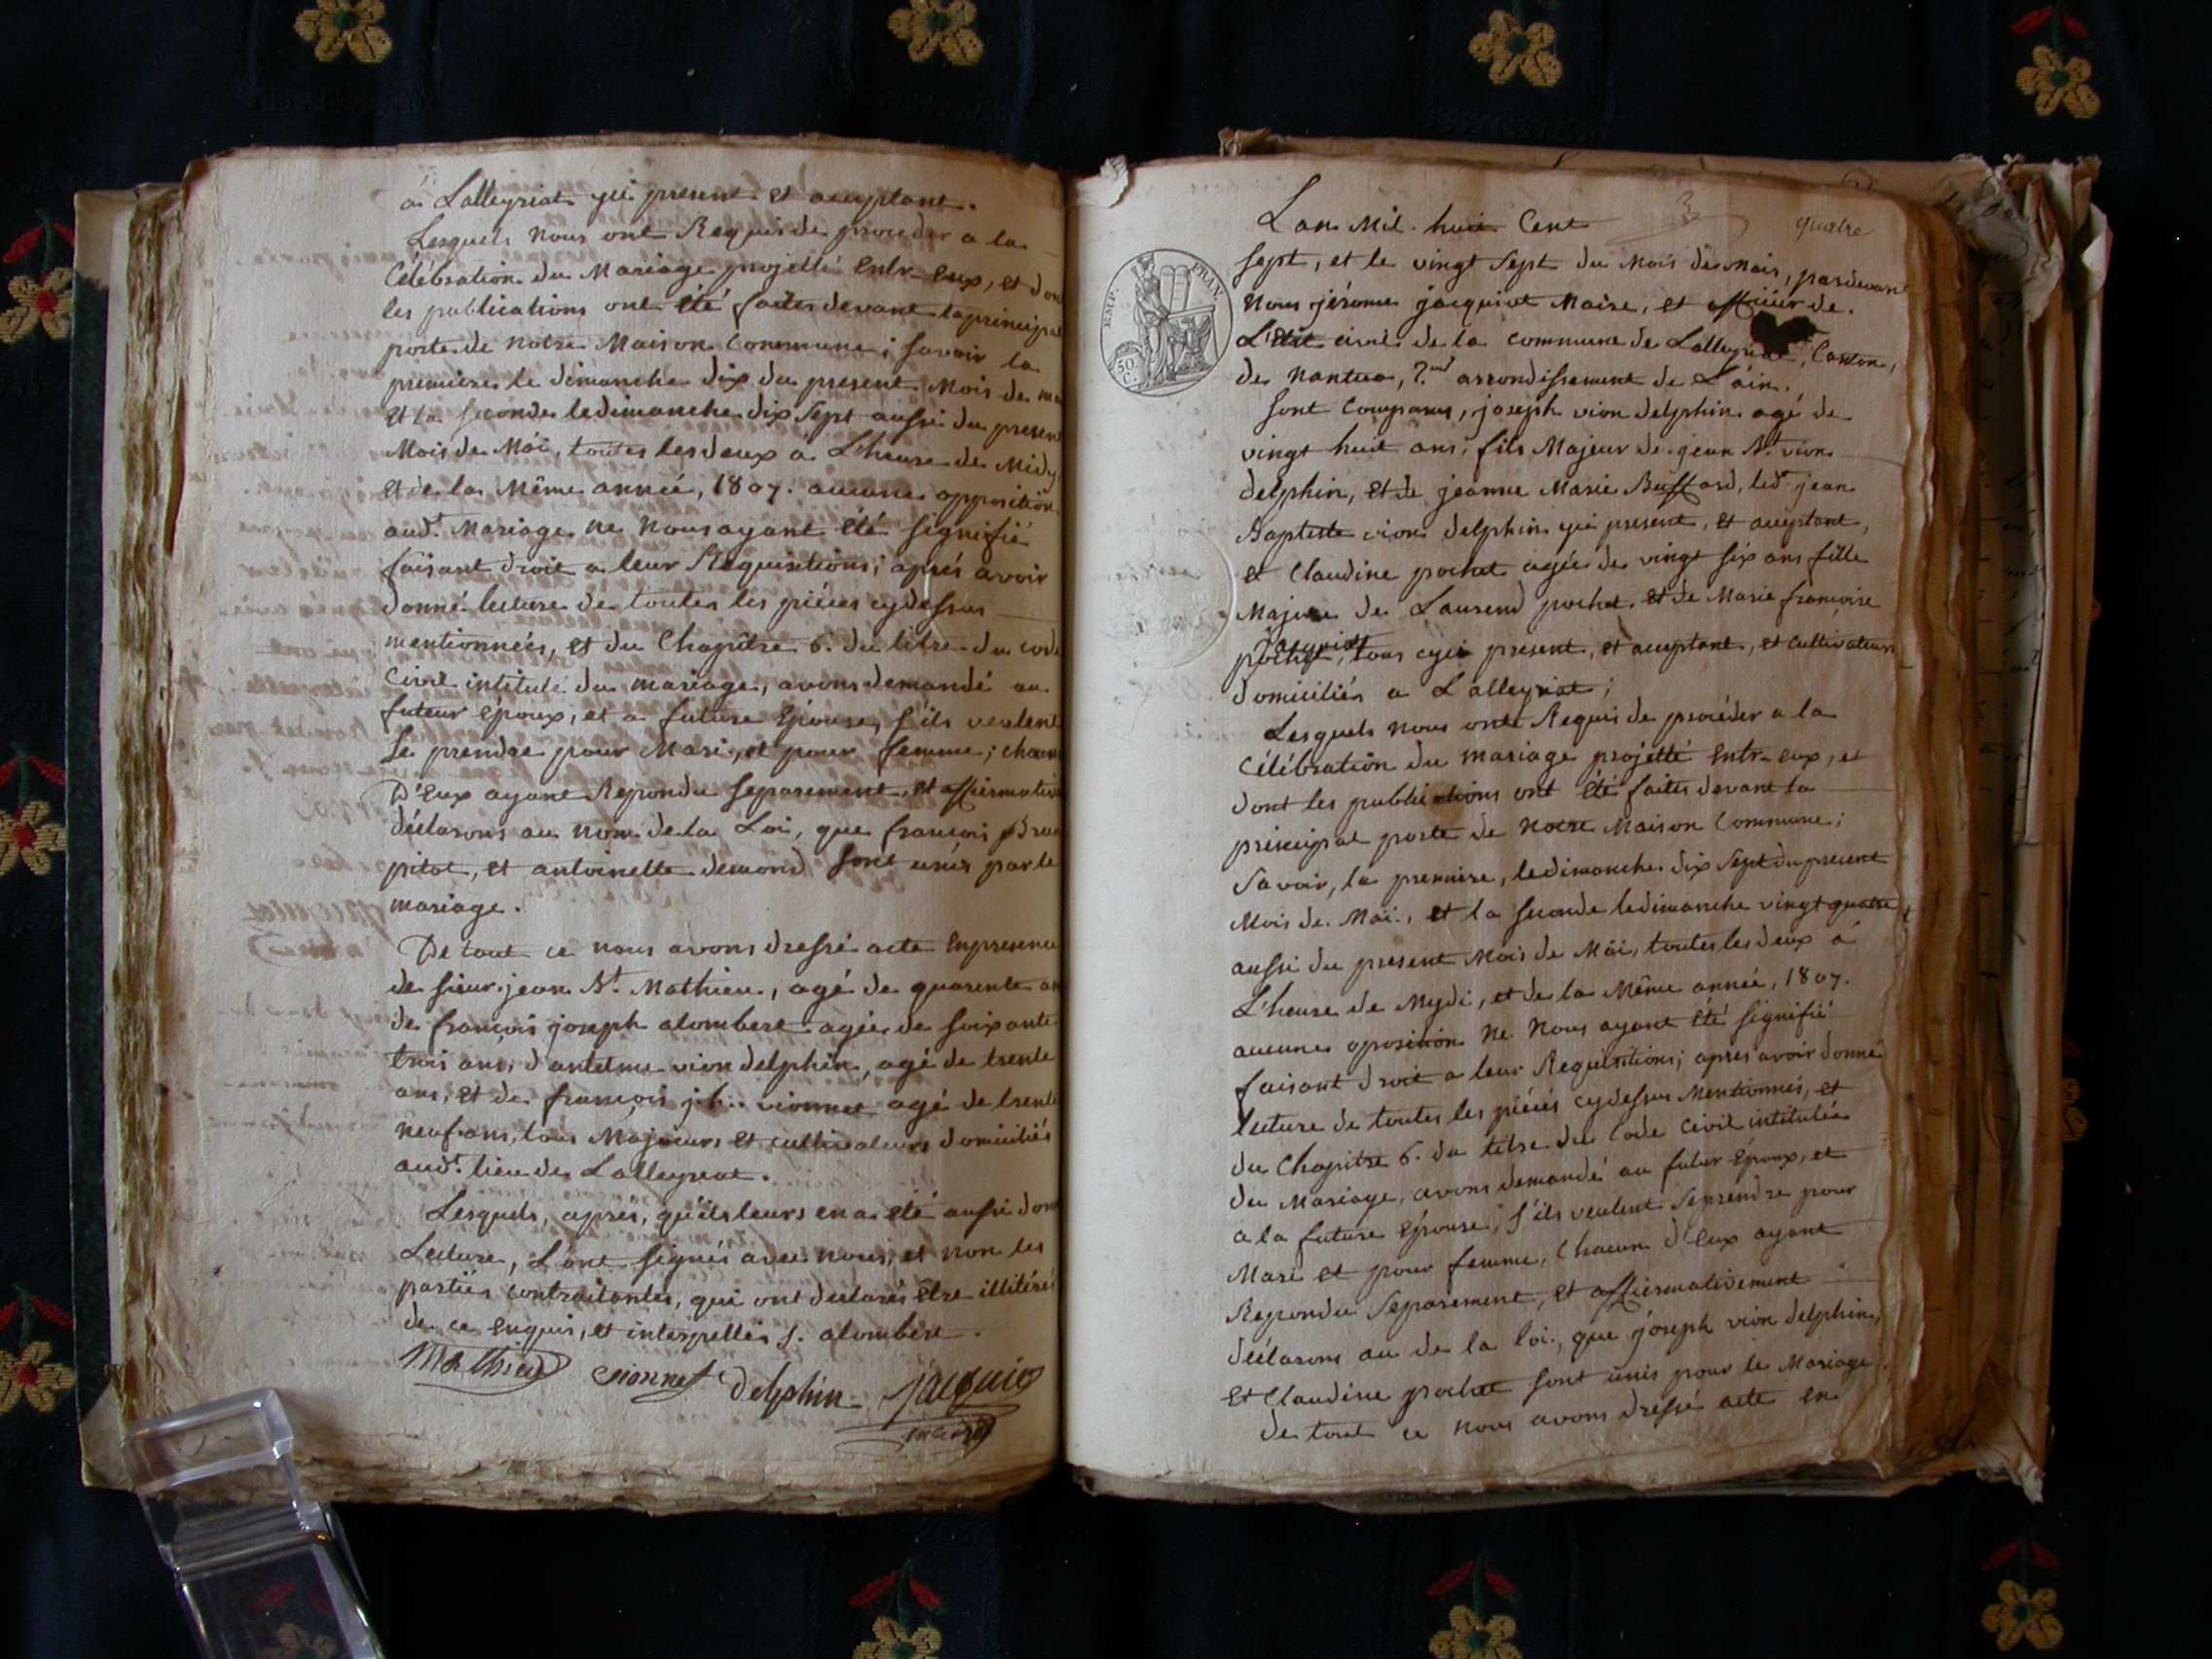 a Lalleyriat yci present et acceptant.
Lesquels nous ont Requis de proceder a la
Célébration du Mariage projetté entr-eux, et don
les publications ont été faites devant la principal
porte de notre Maison Commune; savoir la
premiere le dimanche dix du present Mois de ma
et la seconde le dimanche dix sept aussi du present
Mois de Mäi, toutes les deux a L'heure de Midy
et de la Même année, 1807. aucune opposition
aud.t Mariage ne nous ayant été signifié
faisant droit a leur Requisitions; aprés avoir
donné lecture de toutes les piéces cydessus
mentionneés, et du Chapître 6. du titre du code
Civil intitulé du mariage, avons demandé au
futeur époux, et a future Epouse, s'ils veulent
se prendre pour Mari, et pour femme; chacun
D'Eux ayant Repondu separement, et affirmative
déclarons au nom de la Loi, que francois Brun
pitot, et antoinette demond sont unis par le
mariage.
De tout ce nous avons dressé acte en presence
de sieur jean Bt. Mathieu, agé de quarente an
de francois joseph alombert agée de soixante
trois ans, d'antelme vion delphin, agé de trente
ans, et de francois jh.. vionnet agé de trente
neuf ans, tous Majeurs et cultivateurs domiciliés
aud.t lieu de Lalleyriat.
Lesquels, aprés, qu'ils leurs en a été aussi don
Lecture, L'ont signés avec nous, et non les
partiés contractantes, qui ont declarés être illitérés
de ce enquis, et interpellés j. alombert.
Mathieu vionnet Delphin jacquiot
maire
Lan Mil huit Cent 3 quatre
sept, et le vingt sept du Mois de Mai, pardevant
Nous jérome jacquiot Maire, et officiér de
EMP. FRAN.
50 C.
L'état civil de la commune de Lalleyriat, Canton,
de Nantua, arrondissement de L'áin.
sont Comparus, joseph vion delphin agé de
vingt huit ans, fils Majeur de jean Bt. vion
delphin, et de jeanne Marie Buffard, led.t jean
Baptiste vion delphin yci present, et acceptant,
et Claudine pochet agée de vingt six ans fille
Majeure de Laurend pochet, et de Marie francoise
pochet, tous cyci present, et acceptant, et cultivateurs
domiciliés a Lalleyriat;
Lesquels nous ont Requis de procéder a la
Célébration du mariage projetté entr-eux, et
dont les publications ont été faites devant la
principal porte de notre Maison Commune;
Savoir, la premiere, le dimanche dix sept du present
Mois de Mai, et la seconde le dimanche vingt quatre
aussi du present Mois de Mäi, toutes les deux a
L'heure de Mydi, et de la Même année, 1807.
aucune oposition ne nous ayant été signifié
faisant droit a leur Requisitions; apres avoir donné
lecture de toutes les piéces cydessus Mentionnés, et
du Chapitre 6. du titre du Code Civil intitulée
du Mariage, avons demandé au futur époux, et
a la future épouse, s'ils veulent se prendre pour
Mari et pour femme, Chacun d'eux ayant
Repondu Separement, et affirmativement
déclarons au de la loi, que joseph vion delphin,
et Claudine pochet sont unis pour le Mariage.
de tout ce nous avons dressé acte en